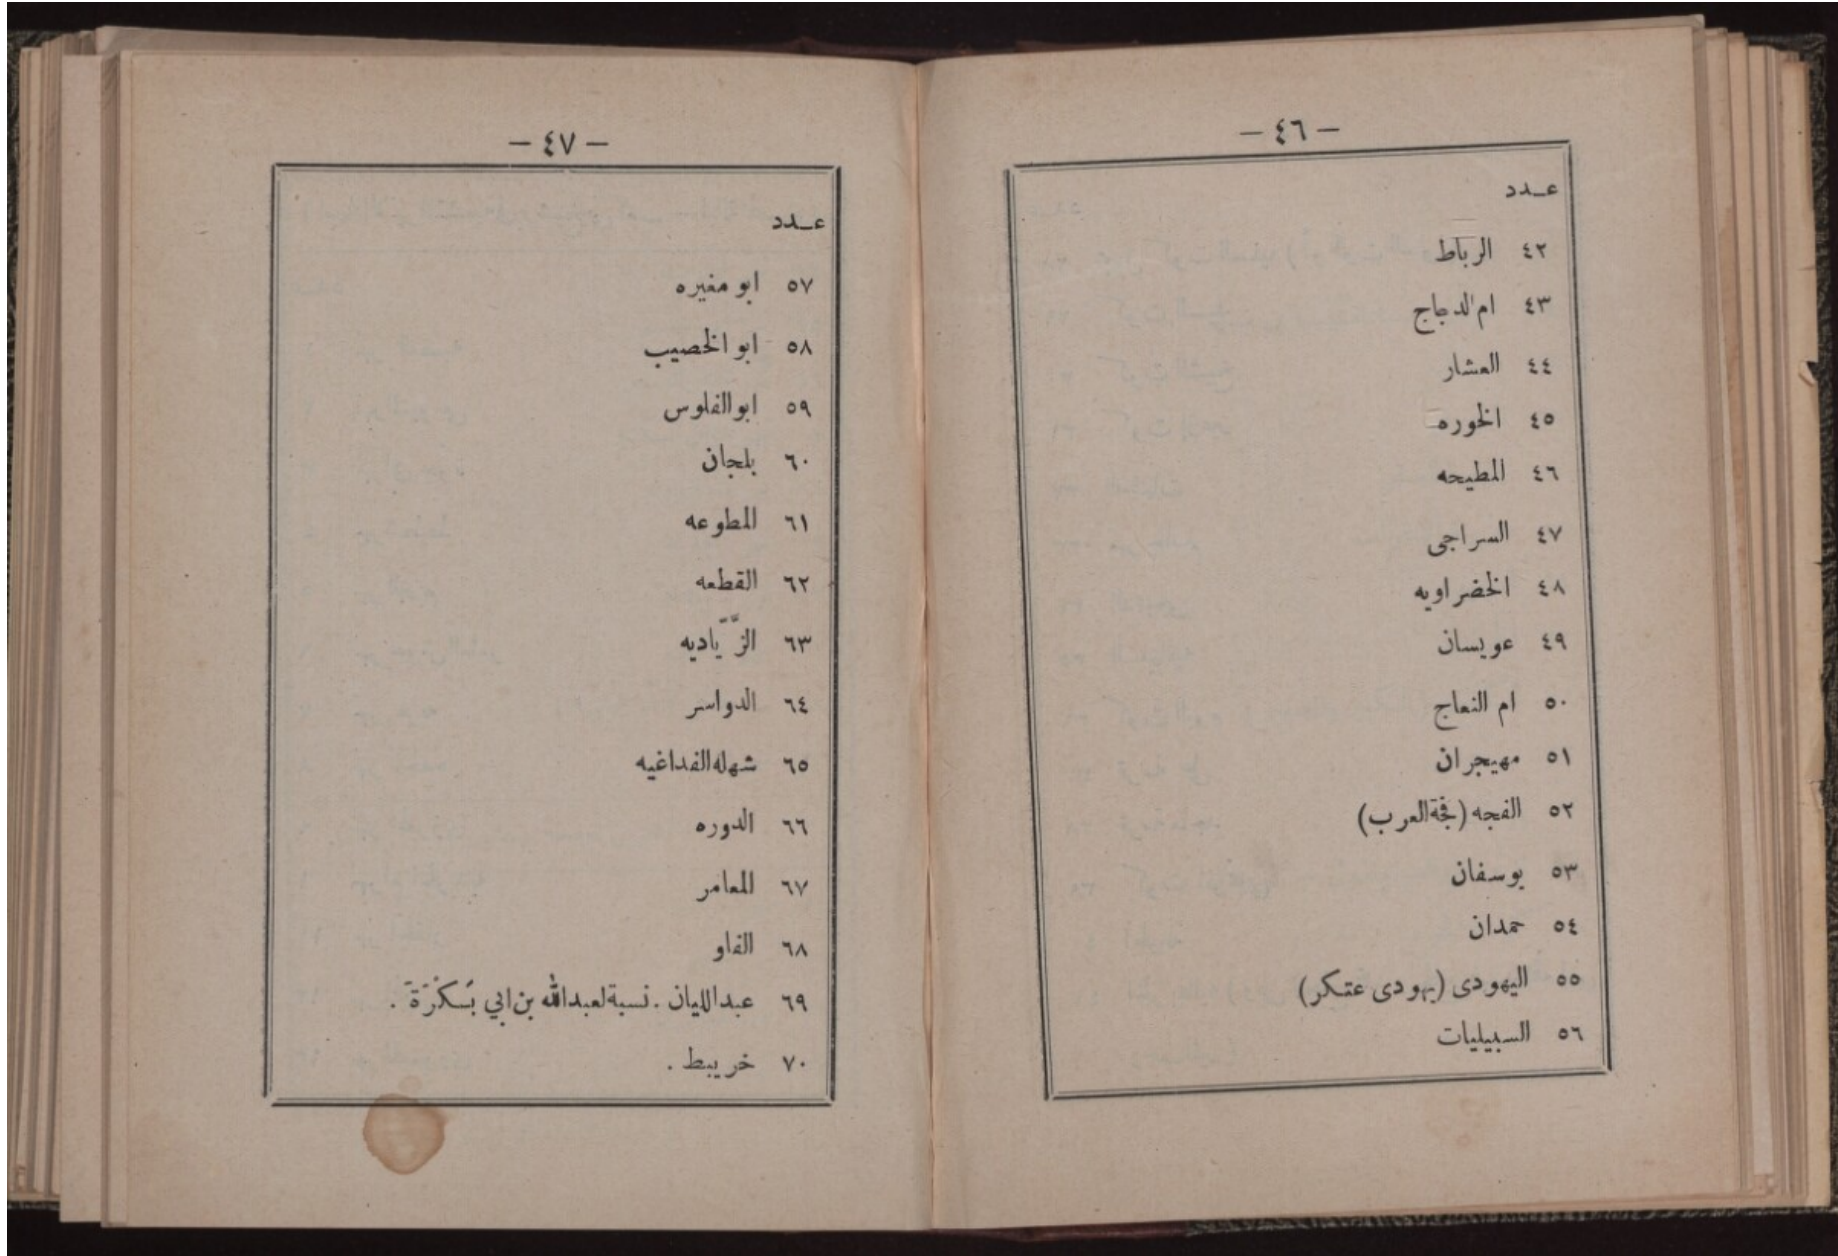 — ٤٦ —
عـدد
٤٢ الرباط
٤٣ ام الدجاج
٤٤ العشار
٤٥ الخوره
٤٦ المطيحه
٤٧ السراجى
٤٨ الخضراويه
٤٩ عويسان
٥٠ ام النعاج
٥١ مهيجران
٥٢ الفجه (فجة العرب)
٥٣ يوسفان
٥٤ حمدان
٥٥ اليهودى (يهودى عتكر)
٥٦ السبيليات
— ٤٧ —
عـدد
٥٧ ابو مغيره
٥٨ ابو الخصيب
٥٩ ابو الفلوس
٦٠ بلجان
٦١ المطوعه
٦٢ القطعه
٦٣ الزَّيَّاديه
٦٤ الدواسر
٦٥ شهله الفداغيه
٦٦ الدوره
٦٧ المعامر
٦٨ الفاو
٦٩ عبد الليان . نسبة لعبد الله بن ابي بَسكْرَةَ .
٧٠ خريبط .